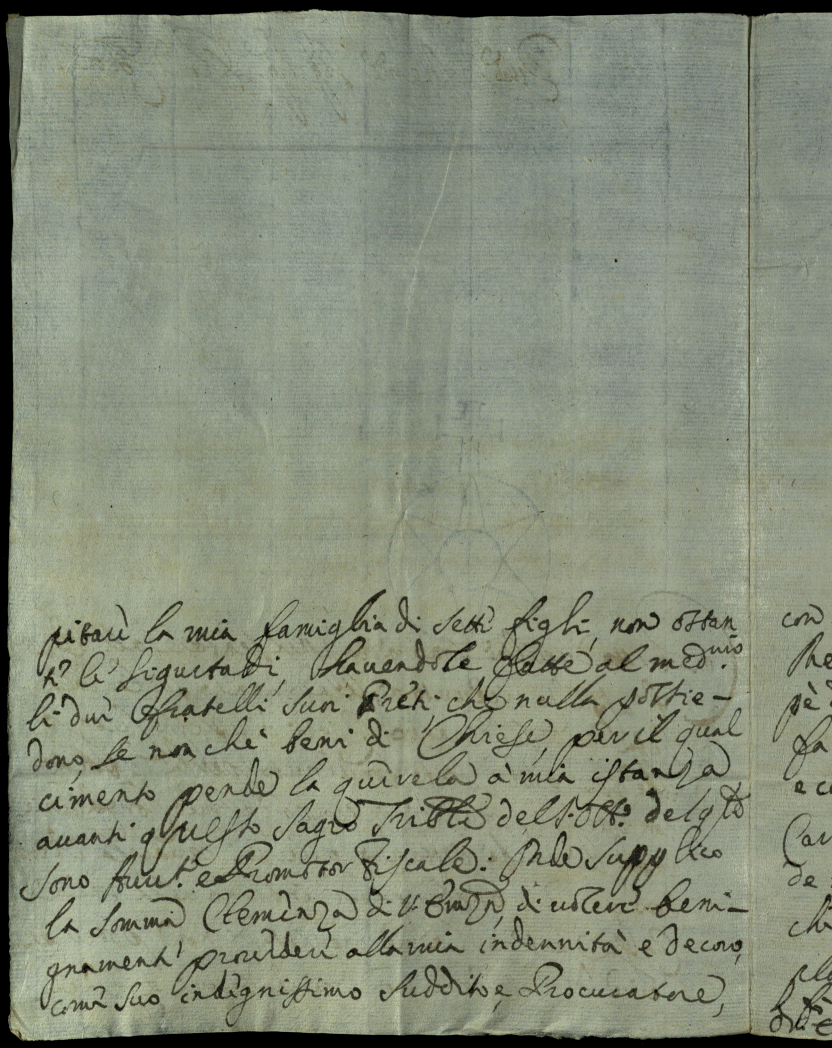 pitare la mia famiglia di sette figli, non ostan
te li sigurtadi, havendole fatte al med.mo
li due fratelli suoi Preti, che nulla possie-
dono, se non che beni di Chiese, per il qual
cimento pende la querela à mia istanza
avanti questo Sagro Trib.le del S. Off.o del q.le
sono Avv.to e Promotor Fiscale: Onde supplico
la somma Clemenza di V. Em.za, di volere beni-
gnamente provedere alla mia indennità e decoro,
come suo indegnissimo suddito, e Procuratore,
con
pè
fa
e co
Car
de
ch